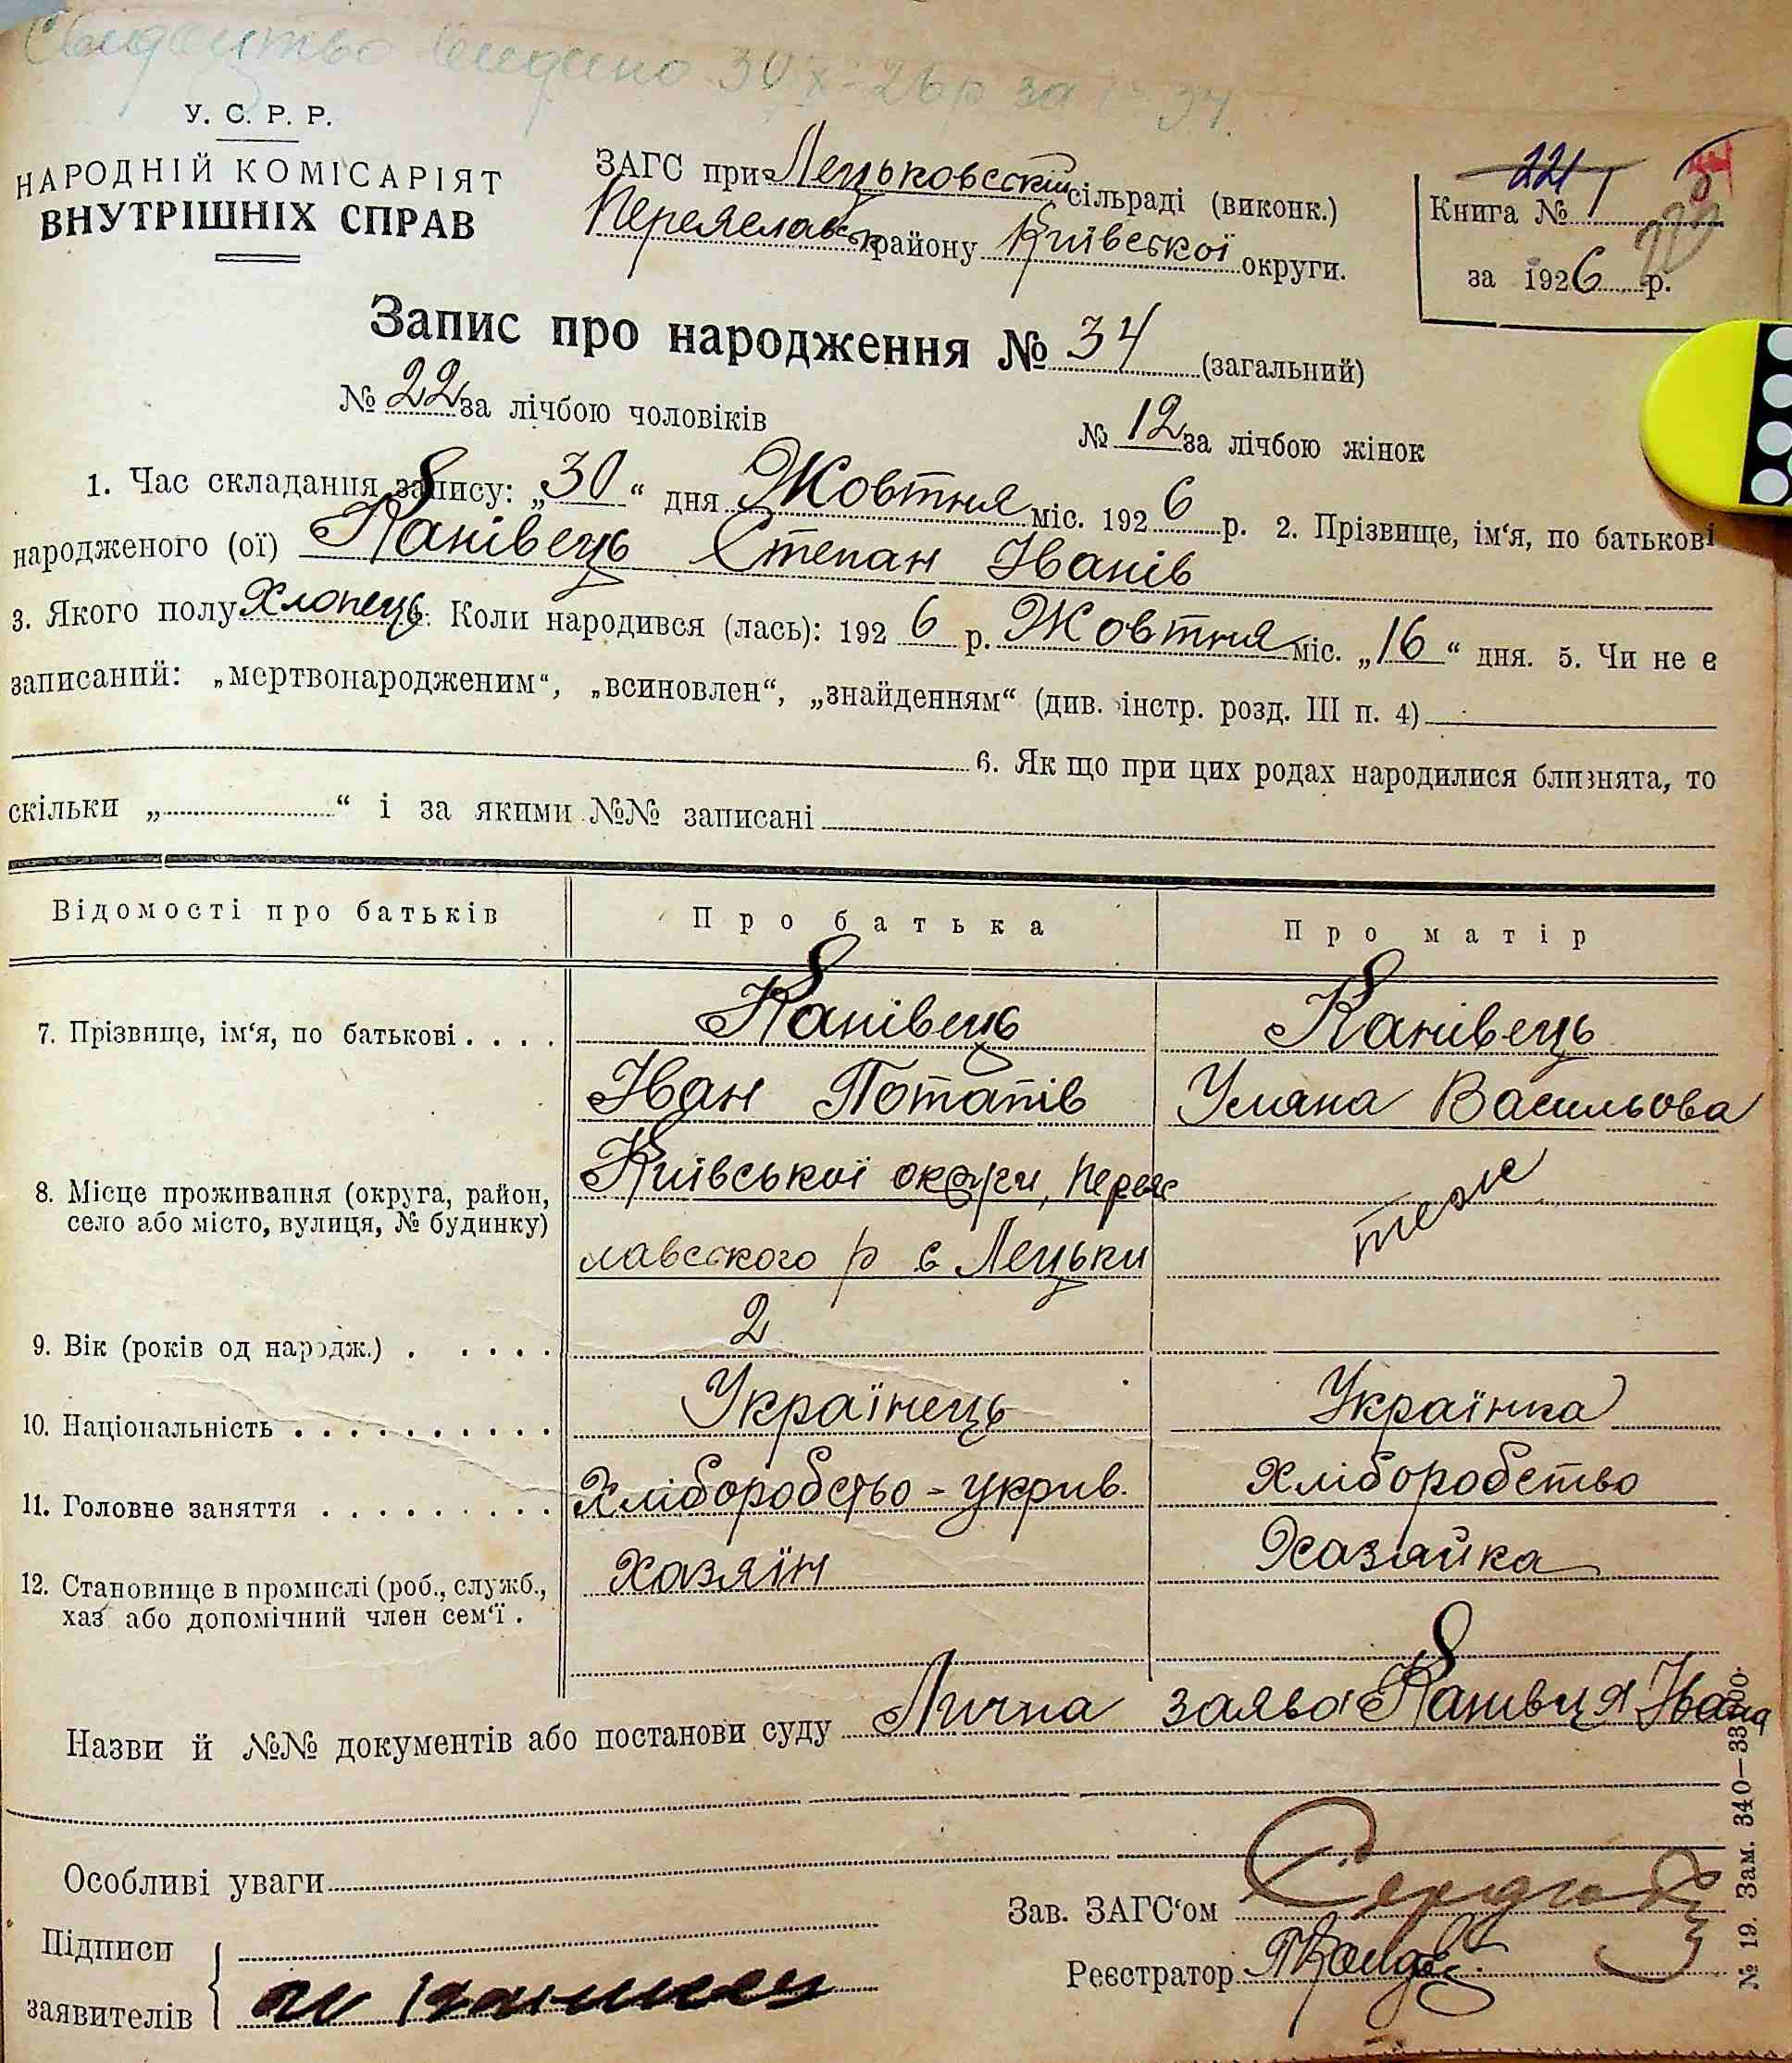 Свидоцтво видано 30 X-26 р за № 34.
У. С. Р. Р.
НАРОДНІЙ КОМІСАРІЯТ
ВНУТРІШНІХ СПРАВ
ЗАГС при Лецьковскій сільраді (виконк.)
Переяславськ району Київскої округи.
221
Книга № 1
за 1926 р.
Запис про народження № 34 (загальний)
№ 22 за лічбою чоловіків
№ 12 за лічбою жінок
1. Час складання запису: „30“ дня Жовтня міс. 1926 р. 2. Прізвище, ім‘я, по батькові
народженого (ої) Канівець Степан Іванів
3. Якого полу Хлопець. Коли народився (лась): 1926 р. Жовтня міс. „16“ дня. 5. Чи не є
записаний: „мертвонародженим“, „всиновлен“, „знайденням“ (див. інстр. розд. III п. 4)
6. Як що при цих родах народилися близнята, то
скільки „ “ і за якими №№ записані
Відомості про батьків Про батька Про матір
7. Прізвище, ім‘я, по батькові . . . . Канівець Канівець
Іван Потапів Уляна Васильова
8. Місце проживання (округа, район, Київської округи, Перея теж
село або місто, вулиця, № будинку)
лавского р с Лецьки
9. Вік (років од народж.) . . . . . 2
10. Національність . . . . . . . . . . Українець Українка
11. Головне заняття . . . . . . . . . Хліборобство - укрив. Хліборобство
12. Становище в промислі (роб., служб., Хазяїн Хазяйка
хаз або допомічний член сем‘ї .
Назви й №№ документів або постанови суду Лична заява Канівця Івана
Особливі уваги
Зав. ЗАГС‘ом
Підписи
Реєстратор
заявителів
№ 19. Зам. 340—33000.